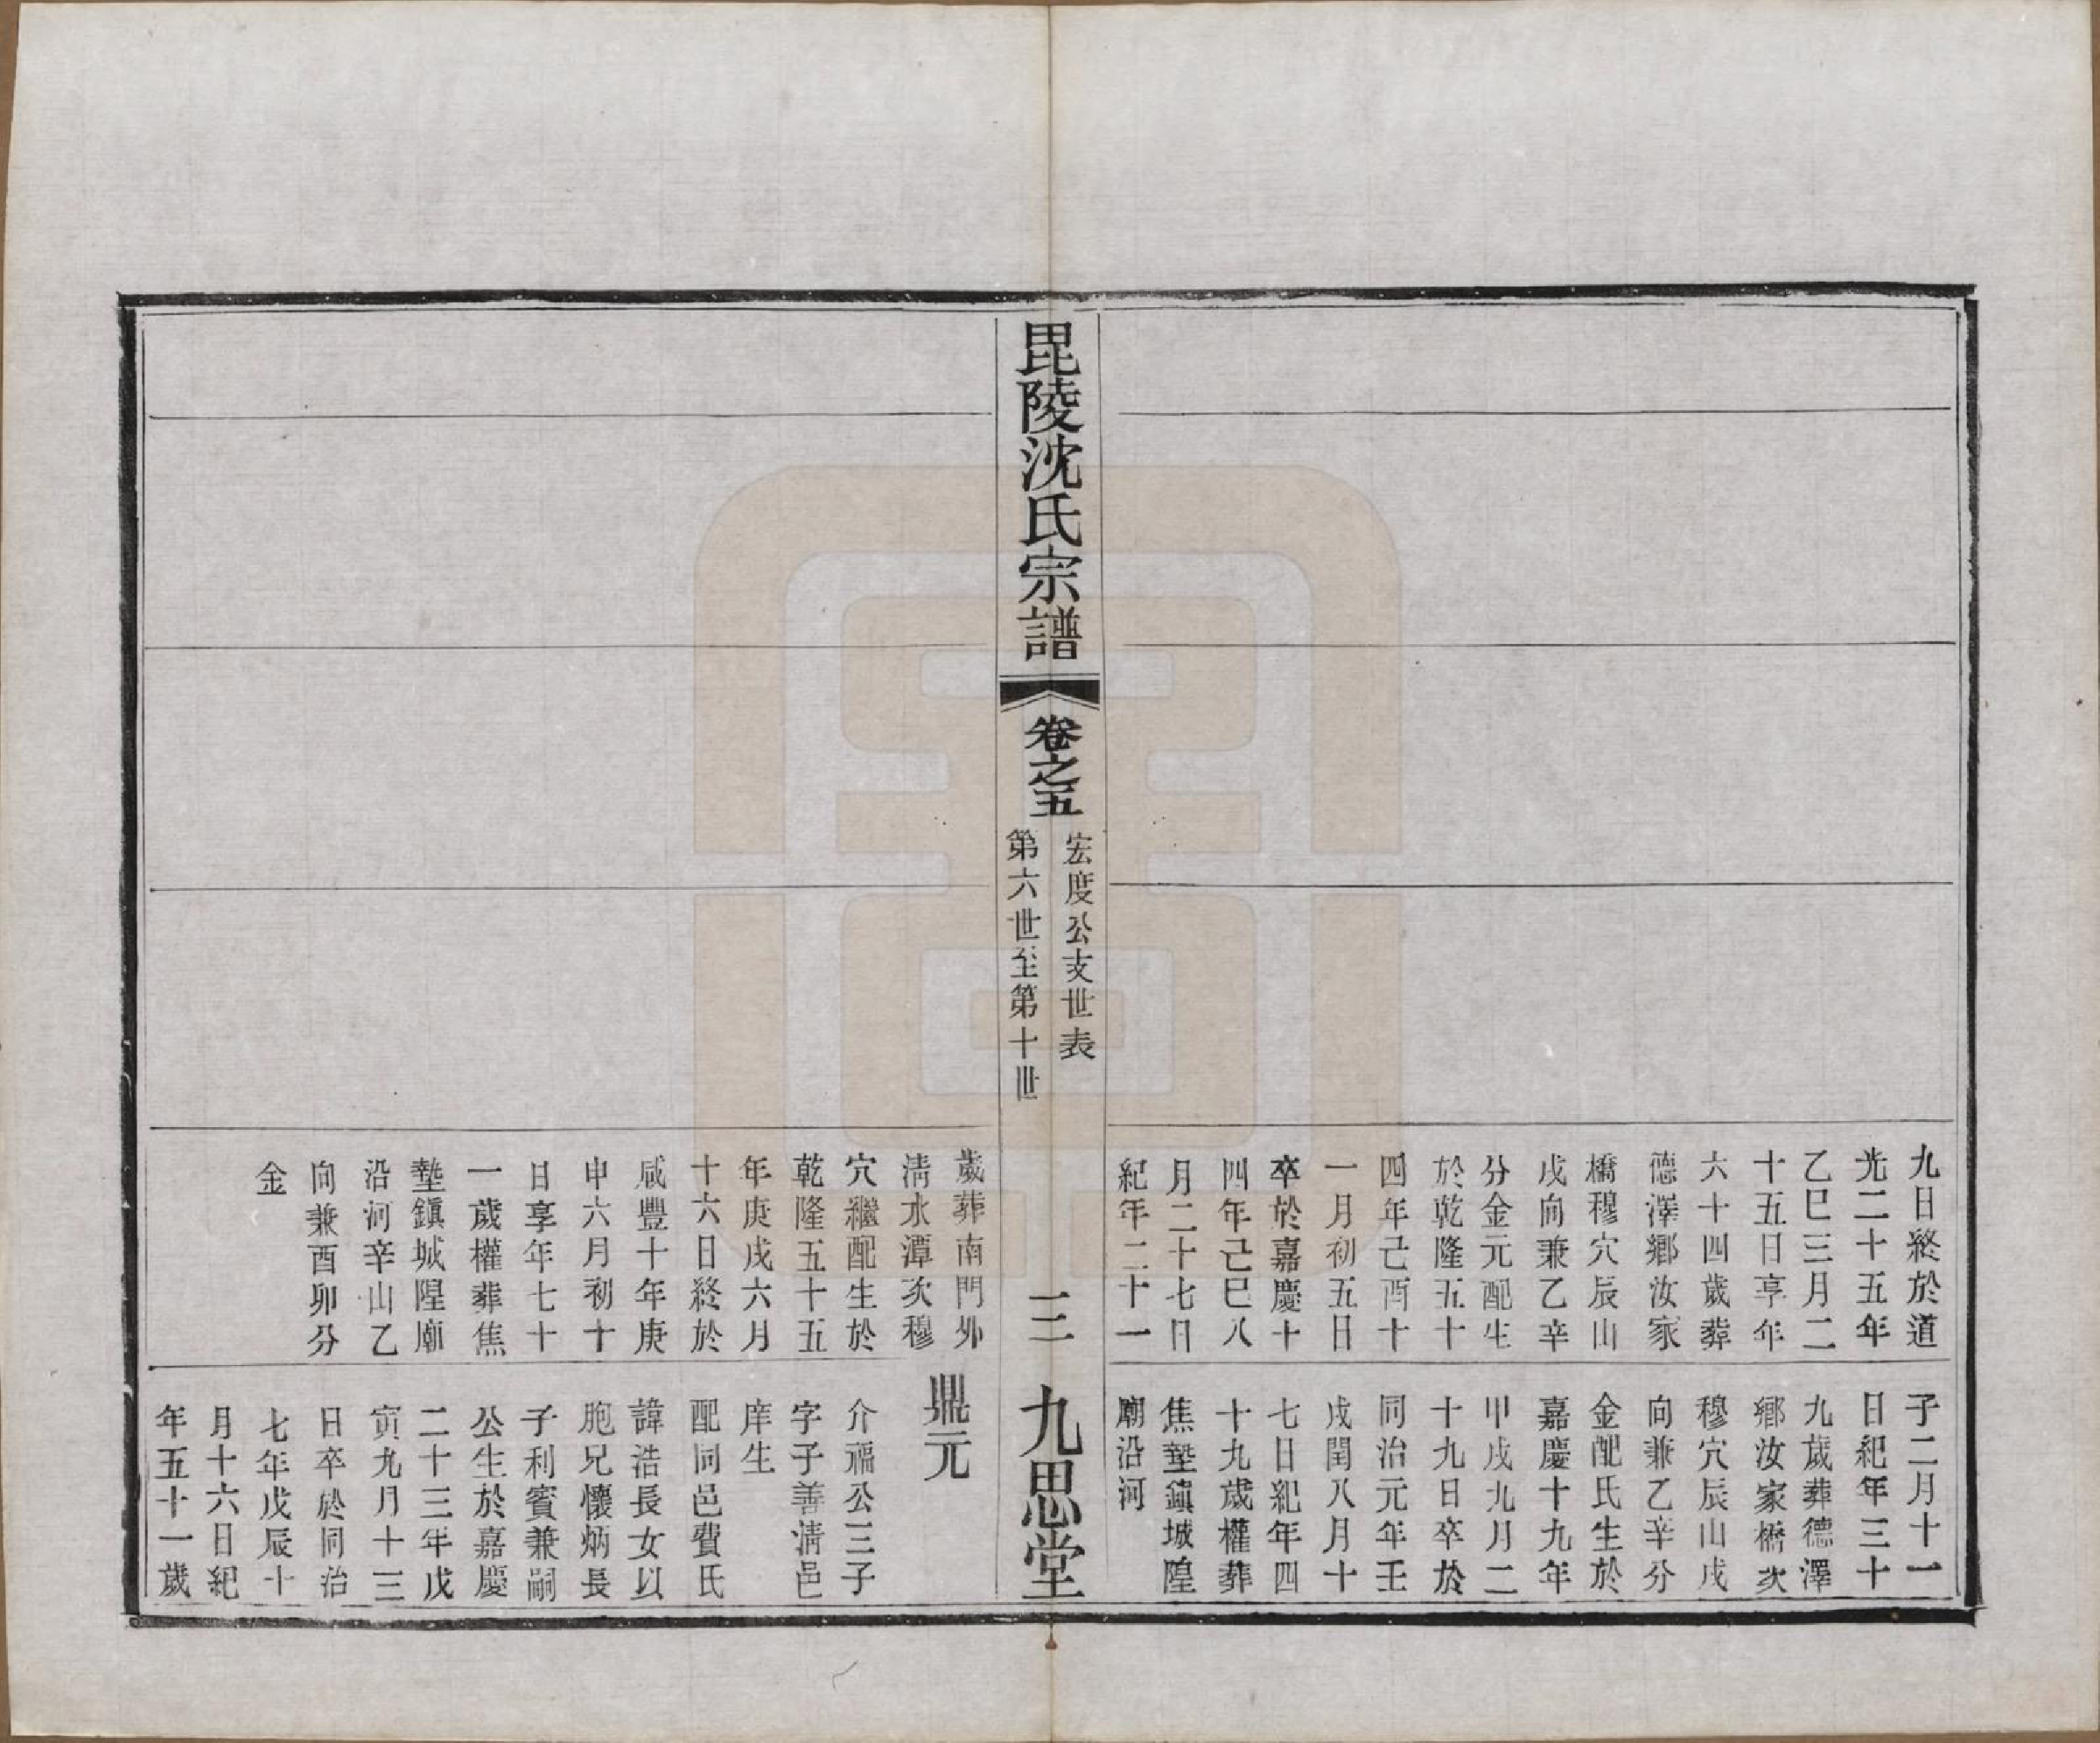 九日終於道
光二十五年
乙巳三月二
十五日享年
六十四歲葬
德澤鄉汝家
橋穆穴辰山
戌向兼乙辛
分金元配生
於乾隆五十
四年己酉十
一月初五日
卒於嘉慶十
四年己巳八
月二十七日
紀年二十一
子二月十一
日紀年三十
九歲葬德澤
鄉汝家橋次
穆穴辰山戌
向兼乙辛分
金配氏生於
嘉慶十九年
甲戌九月二
十九日卒於
同治元年壬
戌閏八月十
七日紀年四
十九歲權葬
焦墊鎮城隍
廟沿河
毘陵沈氏宗譜
卷之五
宏度公支世表
第六世至第十世
三
九思堂
歲葬南門外
清水潭次穆
穴繼配生於
乾隆五十五
年庚戌六月
十六日終於
咸豐十年庚
申六月初十
日享年七十
一歲權葬焦
墊鎮城隍廟
沿河辛山乙
向兼酉卯分
金
鼎元
介福公三子
字子善清邑
庠生
配同邑費氏
諱浩長女以
胞兄懷炳長
子利賓兼嗣
公生於嘉慶
二十三年戊
寅九月十三
日卒於同治
七年戊辰十
月十六日紀
年五十一歲